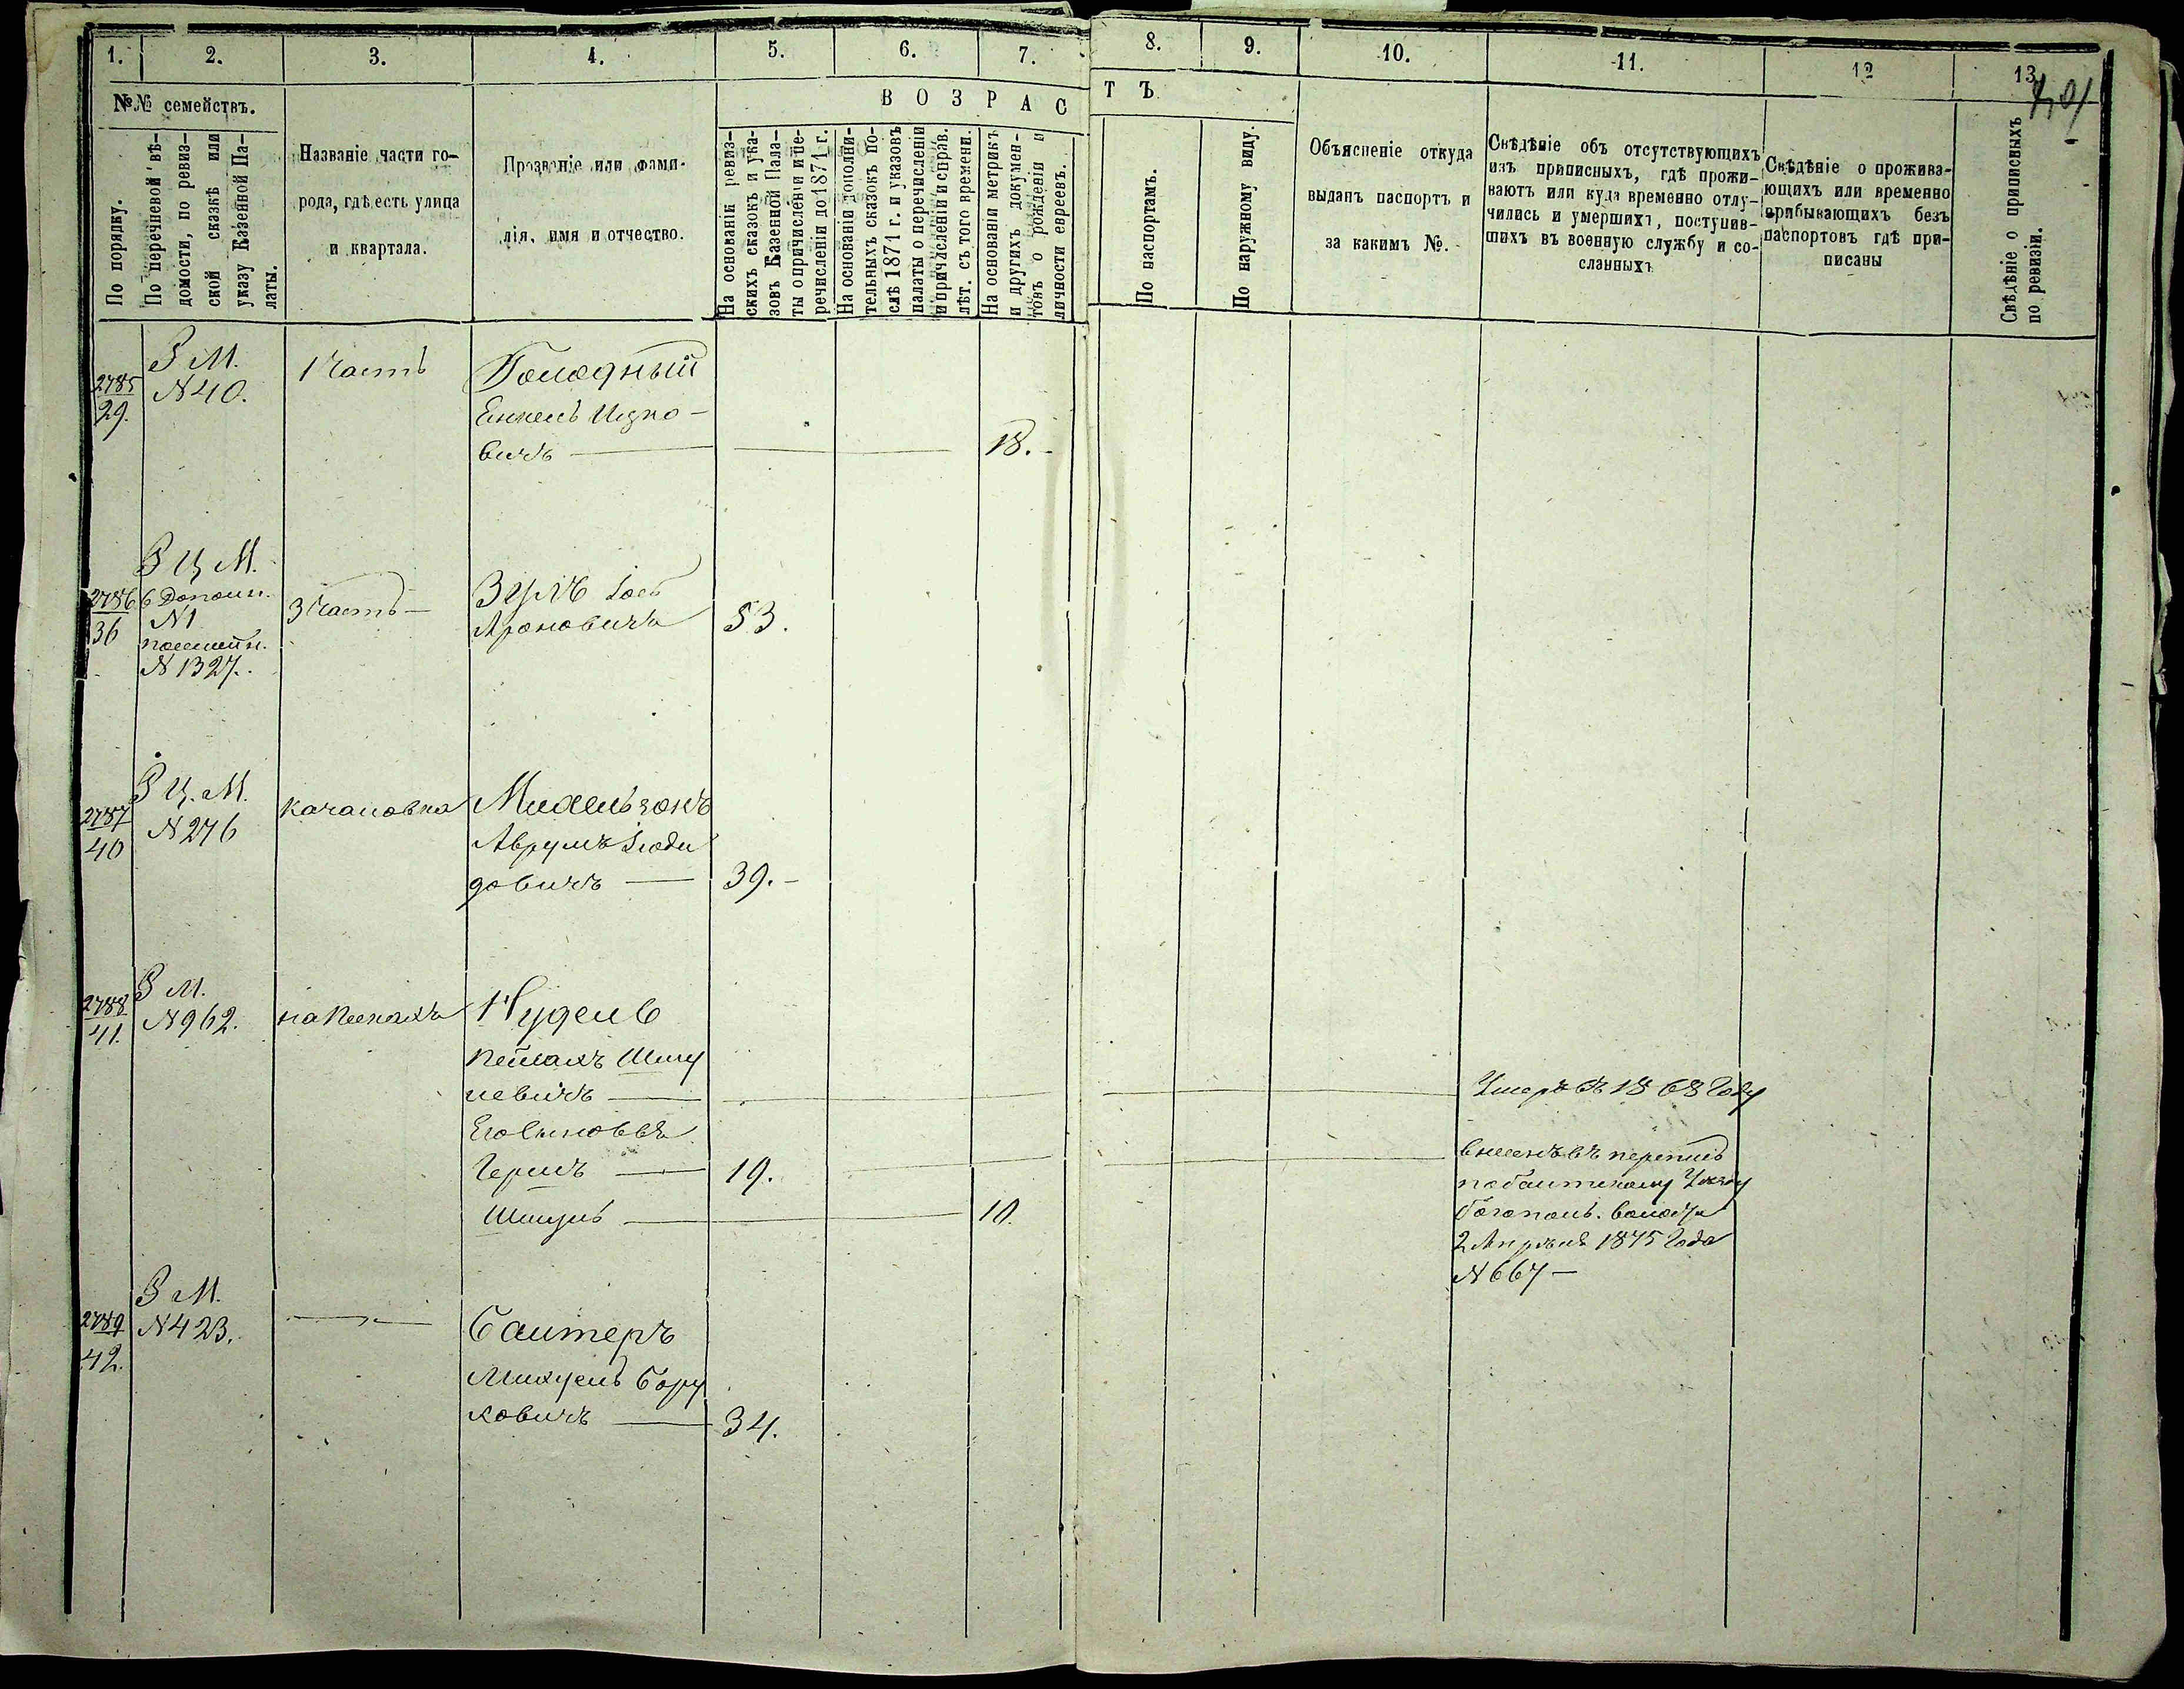 1. 2. 3. 4. 5. 6. 7. 8. 9. 10. 11. 12 13.
401
№№ семействъ.
В О З Р А С Т Ъ
По порядку.
По перечневой вѣ-
домости, по ревиз-
ской сказкѣ или
указу Казенной Па-
латы.
Названіе части го-
рода, гдѣ есть улица
и квартала.
Прозваніе или фами-
лія, имя и отчество.
На основаніи ревиз-
скихъ сказокъ и ука-
зовъ Казенной Пала-
ты о причисленіи и пе-
речисленіи до 1871 г.
На основаніи дополни-
тельныхъ сказокъ по-
слѣ 1871 г. и указовъ
палаты о перечисленіи
и причисленіи и справ.
лѣт. съ того времени.
На основаніи метрикъ
и другихъ докумен-
товъ о рожденіи и
личности евреевъ.
По паспортамъ.
По наружному виду.
Объясненіе откуда
выданъ паспортъ и
за какимъ №.
Свѣдѣніе объ отсутствующихъ
изъ приписныхъ, гдѣ прожи-
ваютъ или куда временно отлу-
чились и умершихъ, поступив-
шихъ въ военную службу и со-
сланныхъ
Свѣдѣніе о прожива-
ющихъ или временно
прибывающихъ безъ
паспортовъ гдѣ при-
писаны
Свѣдѣніе о приписныхъ
по ревизіи.
2785
29.
З М.
N 40.
1 Часть
Голодный
Енкель Ицко-
вичъ — 18.
2786
36
З Ц М.
6 Дополн.
N 1
посемейн.
N 1327.
3 Часть —
Зусъ Іось
Ароновичъ 53.
2787
40
З Ц. М.
N 276
Качановка
Михельзонъ
Аврумъ Іюди
довичъ — 39. —
2788
41.
З М.
N 962.
на Пескахъ
Нудель
Пейсахъ Шму
левичъ — Умеръ въ 1868 Году
Его Сыновья
Гершъ — 19. внесенъ въ перепись
по Балтскому Уѣзду
Шмуль — 10. Богополь. волости
2 Апрѣля 1875 Года
N 667 —
2789
42.
З М.
N 423.
— " —
Салтеръ
Михуель Бору
ховичъ — 34.